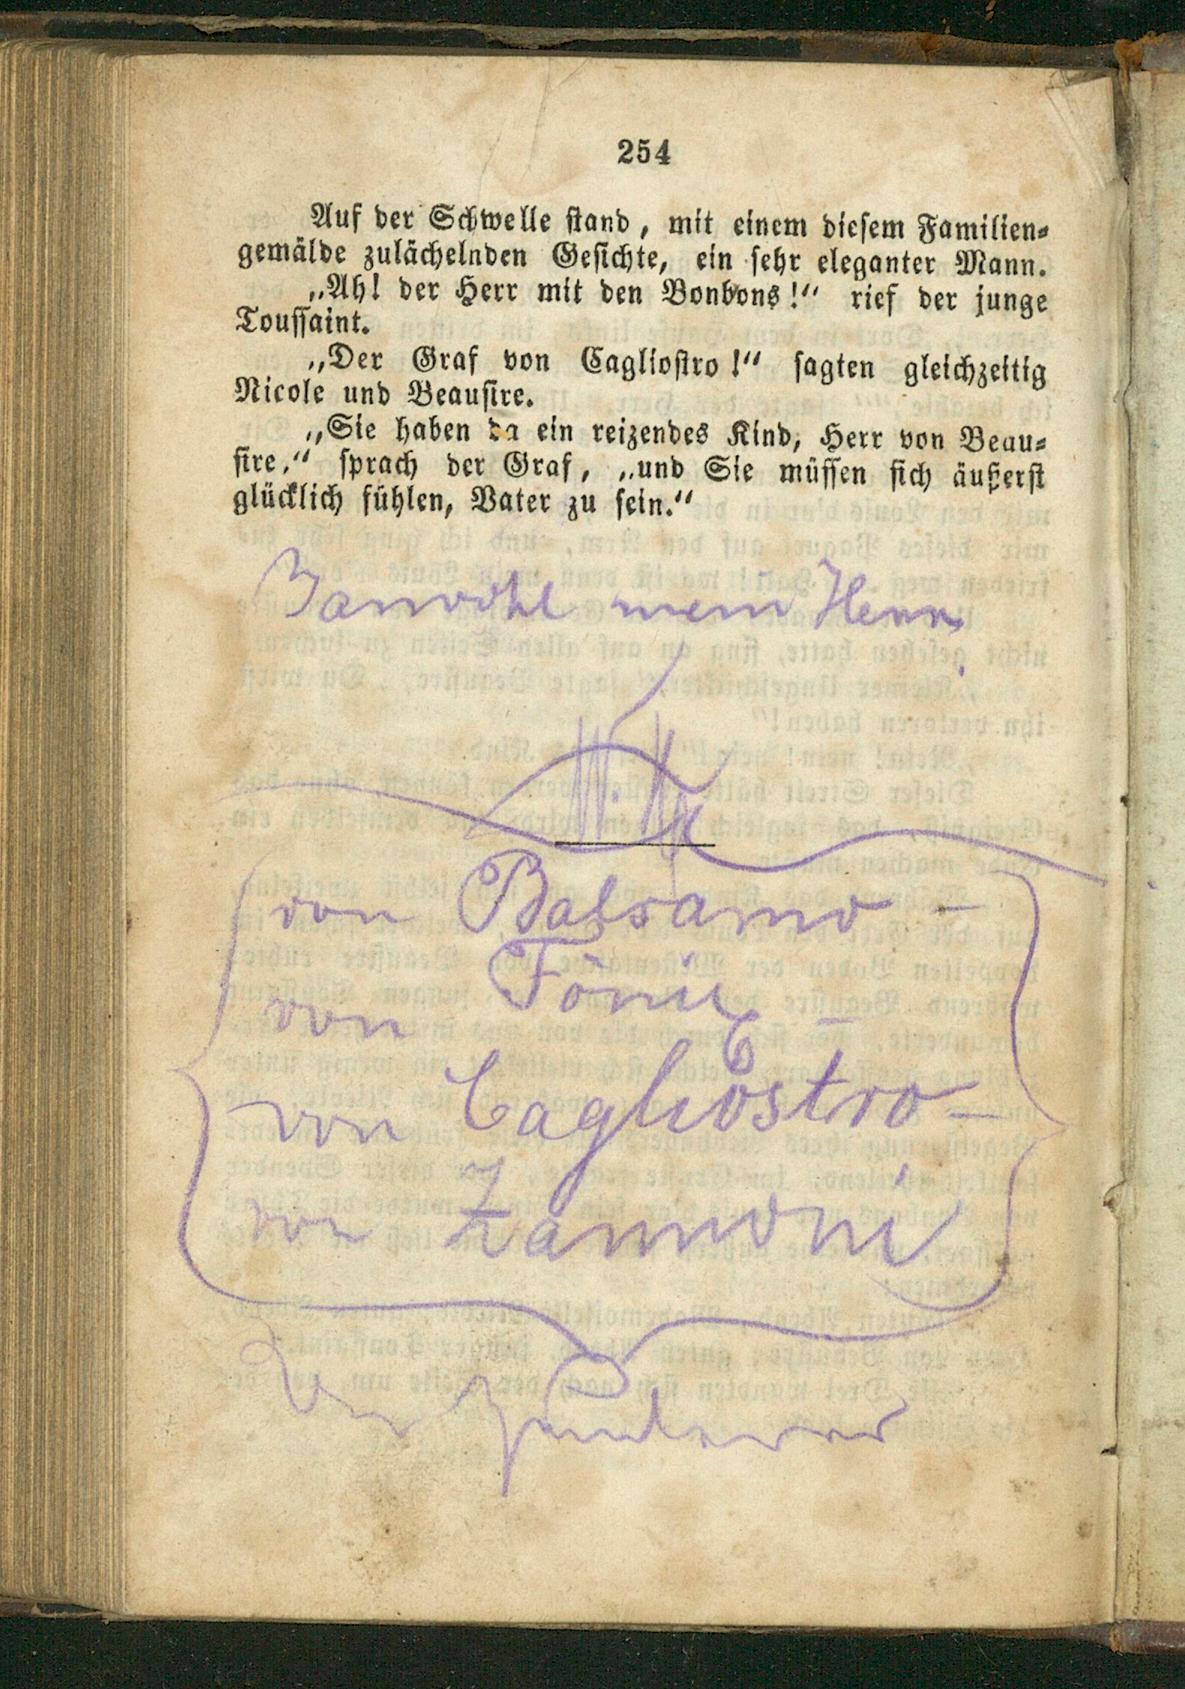 254
Auf der Schwelle stand, mit einem diesem Familien-
gemälde zulächelnden Gesichte, ein sehr eleganter Mann.
„Ah! der Herr mit den Bonbons!“ rief der junge
Toussaint.
„Der Graf von Cagliostro!“ sagten gleichzeitig
Nicole und Beausire.
„Sie haben da ein reizendes Kind, Herr von Beau-
sire,“ sprach der Graf, „und Sie müssen sich äußerst
glücklich fühlen, Vater zu sein.“
Jawohl mein Herr
von Balsamo –
von
von Cagliostro –
von Zannoni
Der